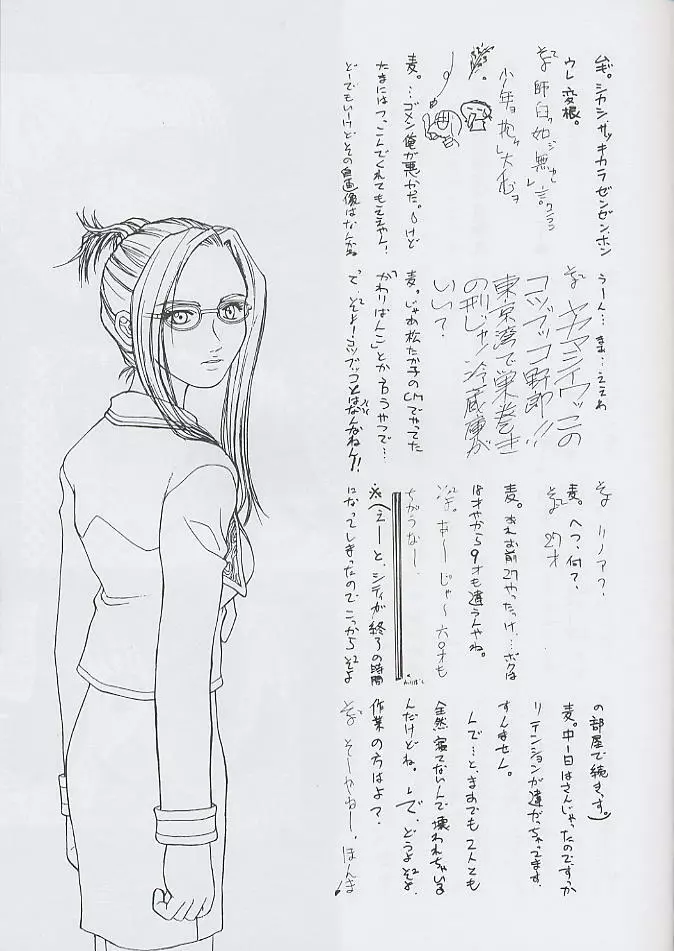 麦。シカシ、サッキカラゼンゼン、ホン
ウレ変根。
少年ョ抱ヶ大志ヲ
麦。…ゴメン俺が悪かった。けど
たまにはつっこんでくれてもええやん！
どーでもいいけどその自画像はなんやねん
うーん…まぁ…ええわ
ヤマシイウッこの
コツブッコ野郎!!
東京湾で巣巻き
の刑じゃ！冷蔵庫が
いい？
麦。じゃあ松たか子のCMでやってた
「かわりばんこ」とか言うやつで…
で、ぞぞよ！コツブッコとはなんやねん!!
リノア？
麦。へっ、何？
27才
麦。おれお前27やったっけ…ボクは
18才やから9才も違うんやね。
あーじゃ〜六〇才も
ちがうなー。
※（えーと、シティが終了の時間
になってしまったのでこっからぞぞよ
の部屋で続きっす。）
麦。中一日はさんじゃったのですか
リテンションが違がっちゃってます。
すんません。
んで…と、まぁでも二人とも
全然寝てないんで壊われちゃいる
んだけどね。で、どうよぞぞよ、
作業の方はよ？
そーやねー。ほんま！